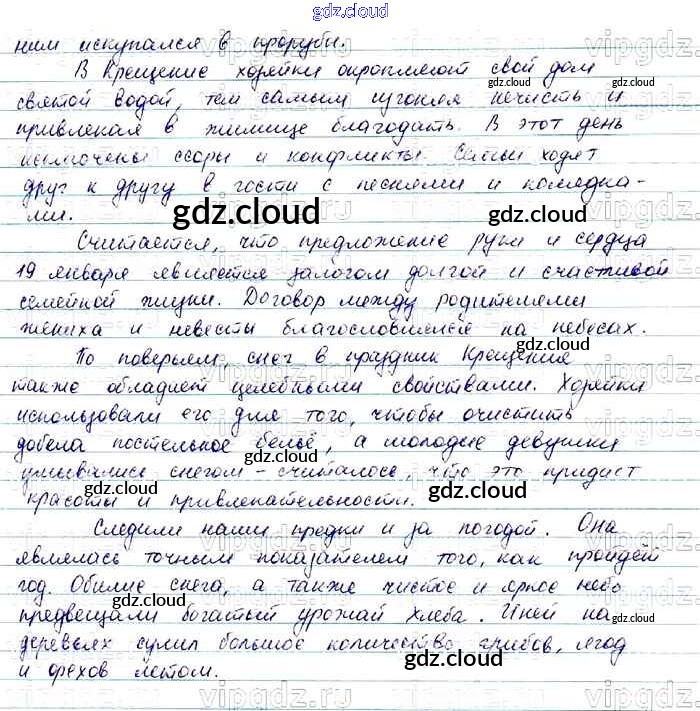 gdz.cloud
ним искупался в проруби.
В Крещение хозяйки окропляют свой дом
святой водой, тем самым изгоняя нечисть и
привлекая в жилище благодать. В этот день
исключены ссоры и конфликты. Семьи ходят
друг к другу в гости с песнями и колядка-
ми.
Считается, что предложение руки и сердца
19 января является залогом долгой и счастливой
семейной жизни. Договор между родителями
жениха и невесты благословляется на небесах.
По поверьям, снег в праздник Крещения
также обладает целебными свойствами. Хозяйки
использовали его для того, чтобы очистить
добела постельное бельё, а молодые девушки
умывались снегом – считалось, что это придаст
красоты и привлекательности.
Следили наши предки и за погодой. Она
являлась точным показателем того, как пройдёт
год. Обилие снега, а также чистое и ясное небо
предвещали богатый урожай хлеба. Иней на
деревьях сулил большое количество грибов, ягод
и орехов летом.
gdz.cloud
gdz.cloud
gdz.cloud
gdz.cloud
gdz.cloud
gdz.cloud
gdz.cloud
gdz.cloud
gdz.cloud
gdz.cloud
gdz.cloud
gdz.cloud
gdz.cloud
vipgdz.ru